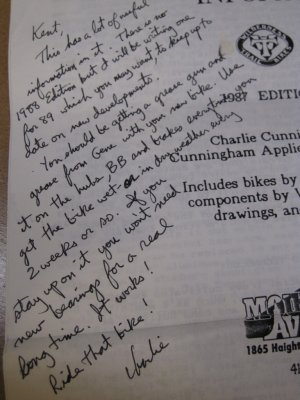 Kent,
This has a lot of useful
information on it. There is no
1988 Edition but I will be writing one
for 89 which you may want, to keep up to
date on new developments.
You should be getting a grease gun and
grease from Gene with your new bike. Use
it on the hubs, BB and brakes everytime you
get the bike wet - or in dry weather every
2 weeks or so. If you
stay up on it you won't need
new bearings for a real
long time. It works!
Ride that bike!
Charlie
WILDERNESS
TRAIL BIKES
1987 EDITI
Charlie Cunn
Cunningham Applie
Includes bikes by
components by
drawings, an
1865 Haight